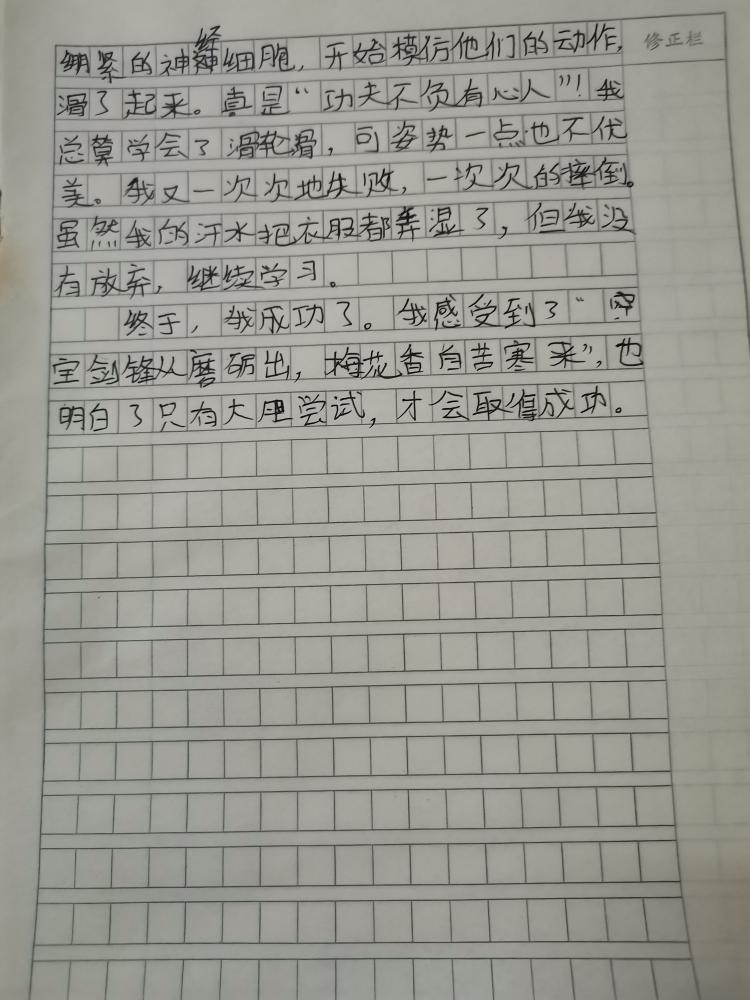 绷紧的神经细胞，开始模仿他们的动作，
修正栏
滑了起来。真是“功夫不负有心人”！我
总算学会了滑轮滑，可姿势一点也不优
美。我又一次次地失败，一次次的摔倒。
虽然我的汗水把衣服都弄湿了，但我没
有放弃，继续学习。
终于，我成功了。我感受到了“
宝剑锋从磨砺出，梅花香自苦寒来”，也
明白了只有大胆尝试，才会取得成功。